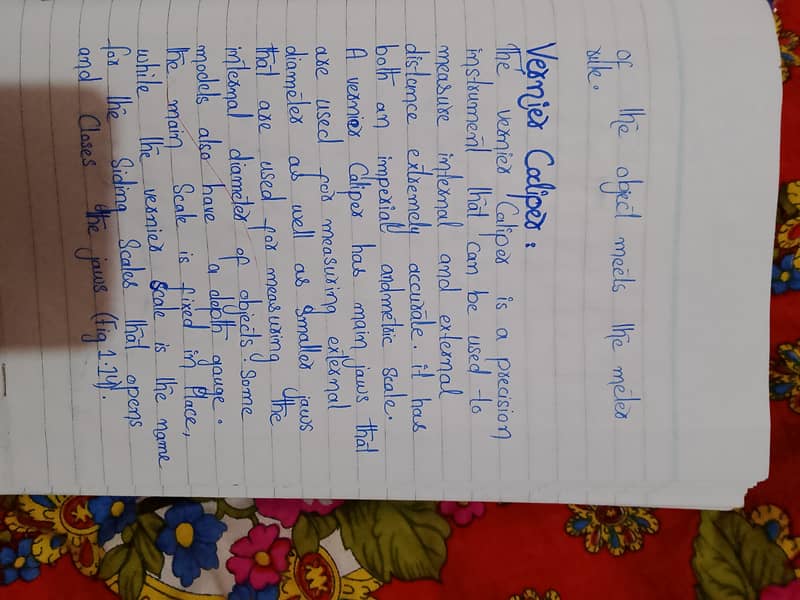 of the object meets the meter
rule.
Vernier Caliper:
The vernier Caliper is a precision
instrument that can be used to
measure internal and external
distance extremely accurate. it has
both an imperial andmetric scale.
A vernier Caliper has main jaws that
are used for measuring external
diameter as well as smaller jaws
that are used for measuring the
internal diameter of objects. Some
models also have a depth gauge.
The main Scale is fixed in Place,
while the vernier Scale is the name
for the Siding Scales that opens
and Closes the jaws (Fig 1.14).